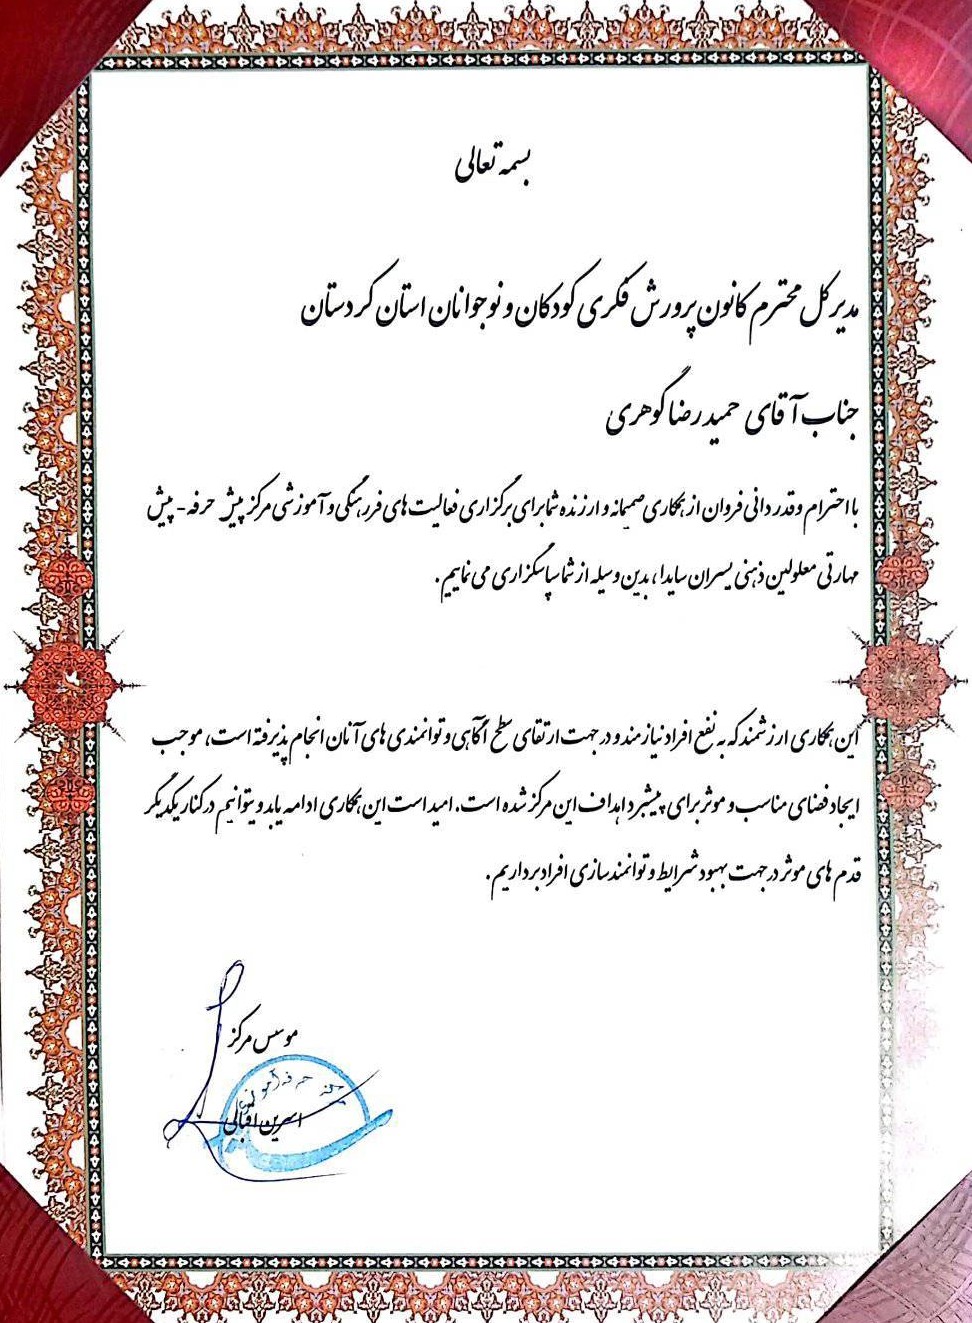 بسمه تعالی
مدیر کل محترم کانون پرورش فکری کودکان و نوجوانان استان کردستان
جناب آقای حمید رضا گوهری
با احترام و قدردانی فروان از همکاری صمیمانه و ارزنده شما برای برگزاری فعالیت های فررهنگی و آموزشی مرکز پیش حرفه - پیش
مهارتی معلولین ذهنی پسران سایدا، بدین وسیله از شما سپاسگزاری می نماییم.
این همکاری ارزشمند که به نفع افراد نیازمند و در جهت ارتقای سطح آگاهی و توانمندی های آنان انجام پذیرفته است، موجب
ایجاد فضای مناسب و موثر برای پیشبرد اهداف این مرکز شده است. امید است این همکاری ادامه یابد و بتوانیم در کنار یکدیگر
قدم های موثر در جهت بهبود شرایط و توانمندسازی افراد برداریم.
موسس مرکز
اسرین اقبالی